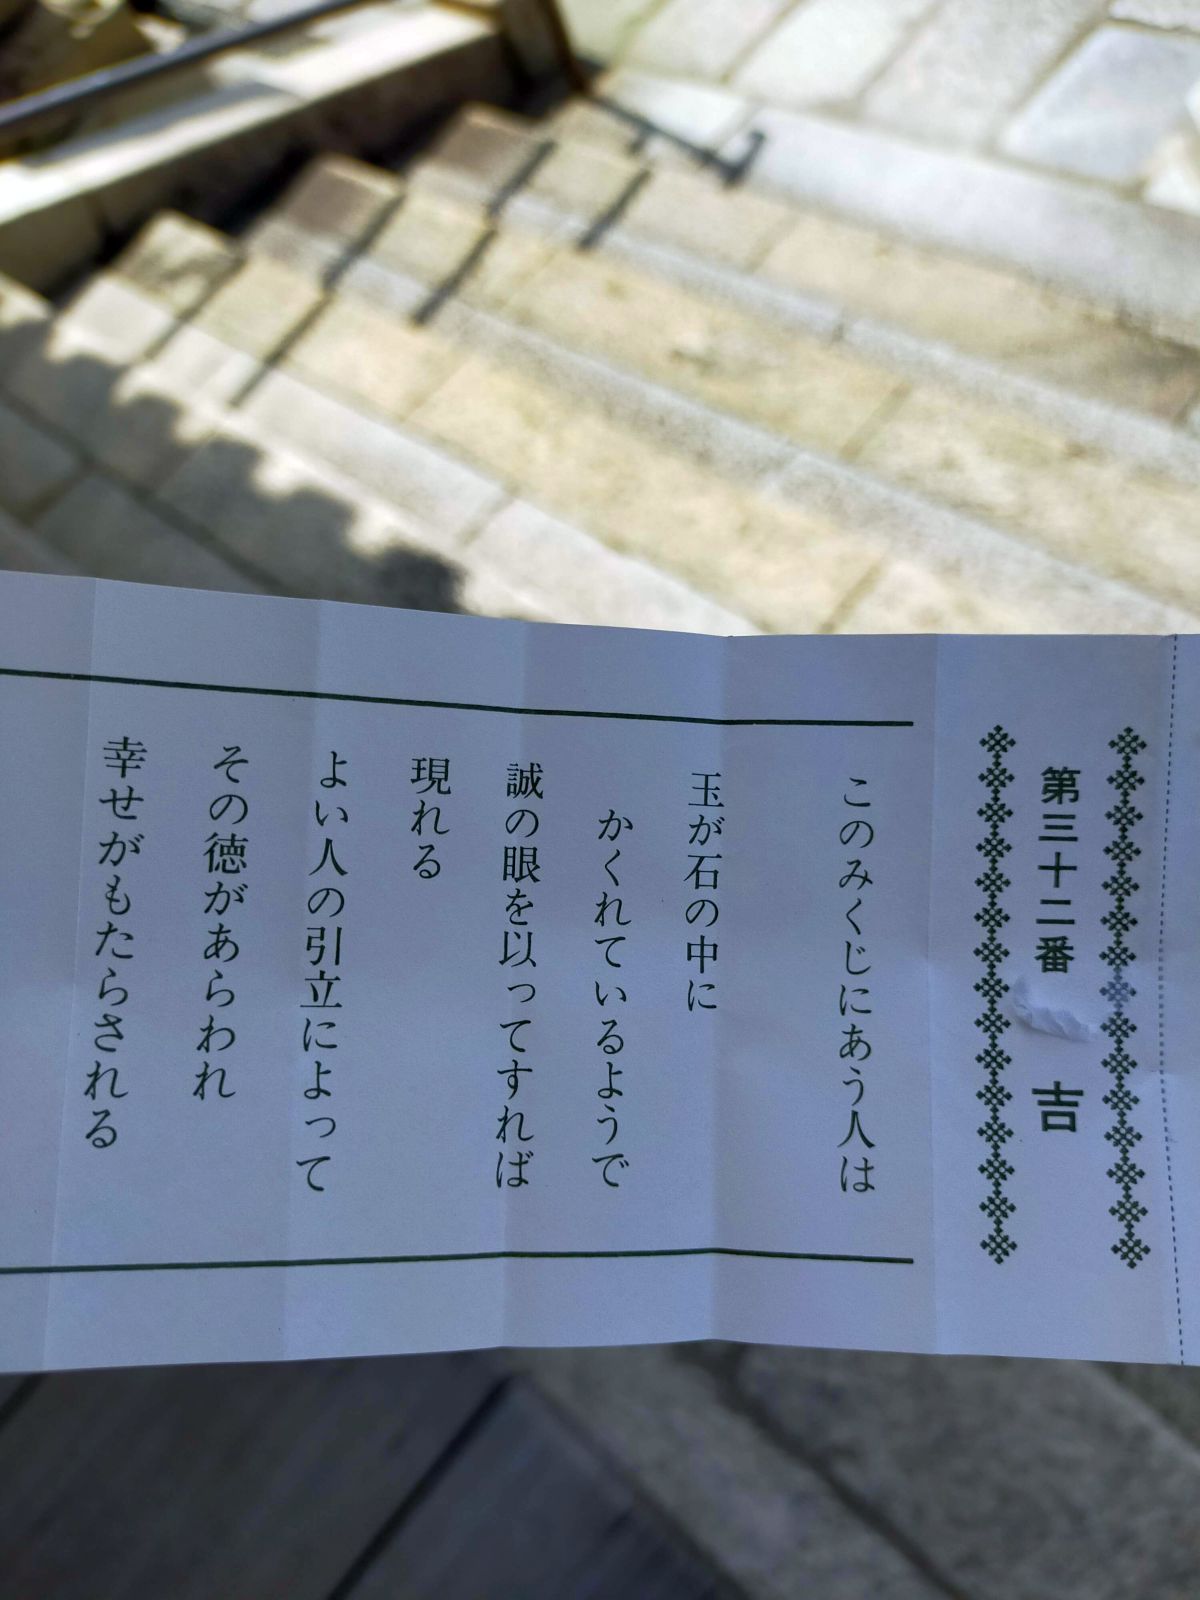 第三十二番 吉
このみくじにあう人は
玉が石の中に
かくれているようで
誠の眼を以ってすれば
現れる
よい人の引立によって
その徳があらわれ
幸せがもたらされる